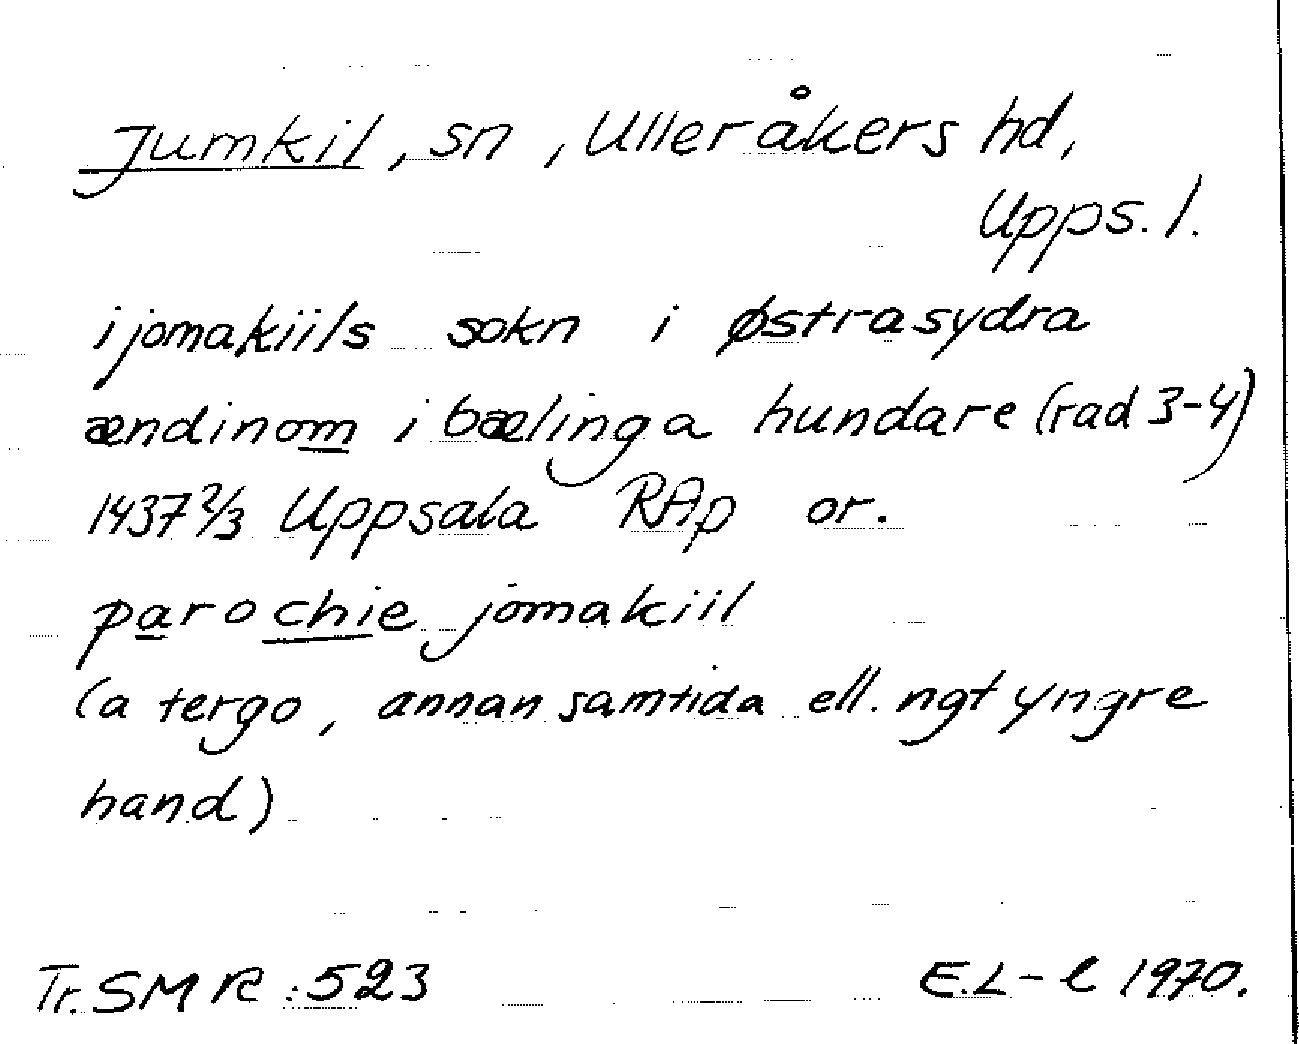 Jumkil, sn, Ulleråkers hd,
Upps. l.
i jomakiils sokn i østrasydra
ændinom i bælinga hundare (rad 3-4)
1437 2/3 Uppsala RAp or.
parochie jomakiil
(a tergo, annan samtida ell. ngt yngre
hand)
Tr. SMR : 523 E.L-l 1970.